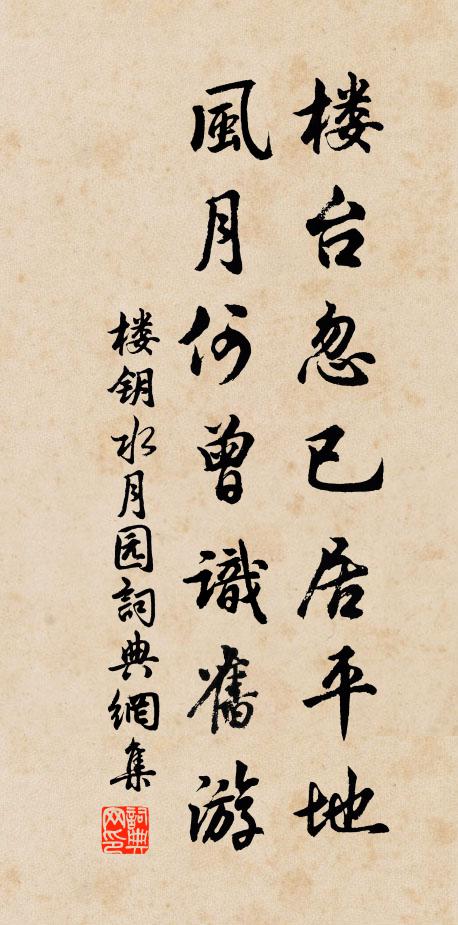 楼台忽已居平地
風月何曾識舊游
楼钥水月园詞典網集
詞典
网印